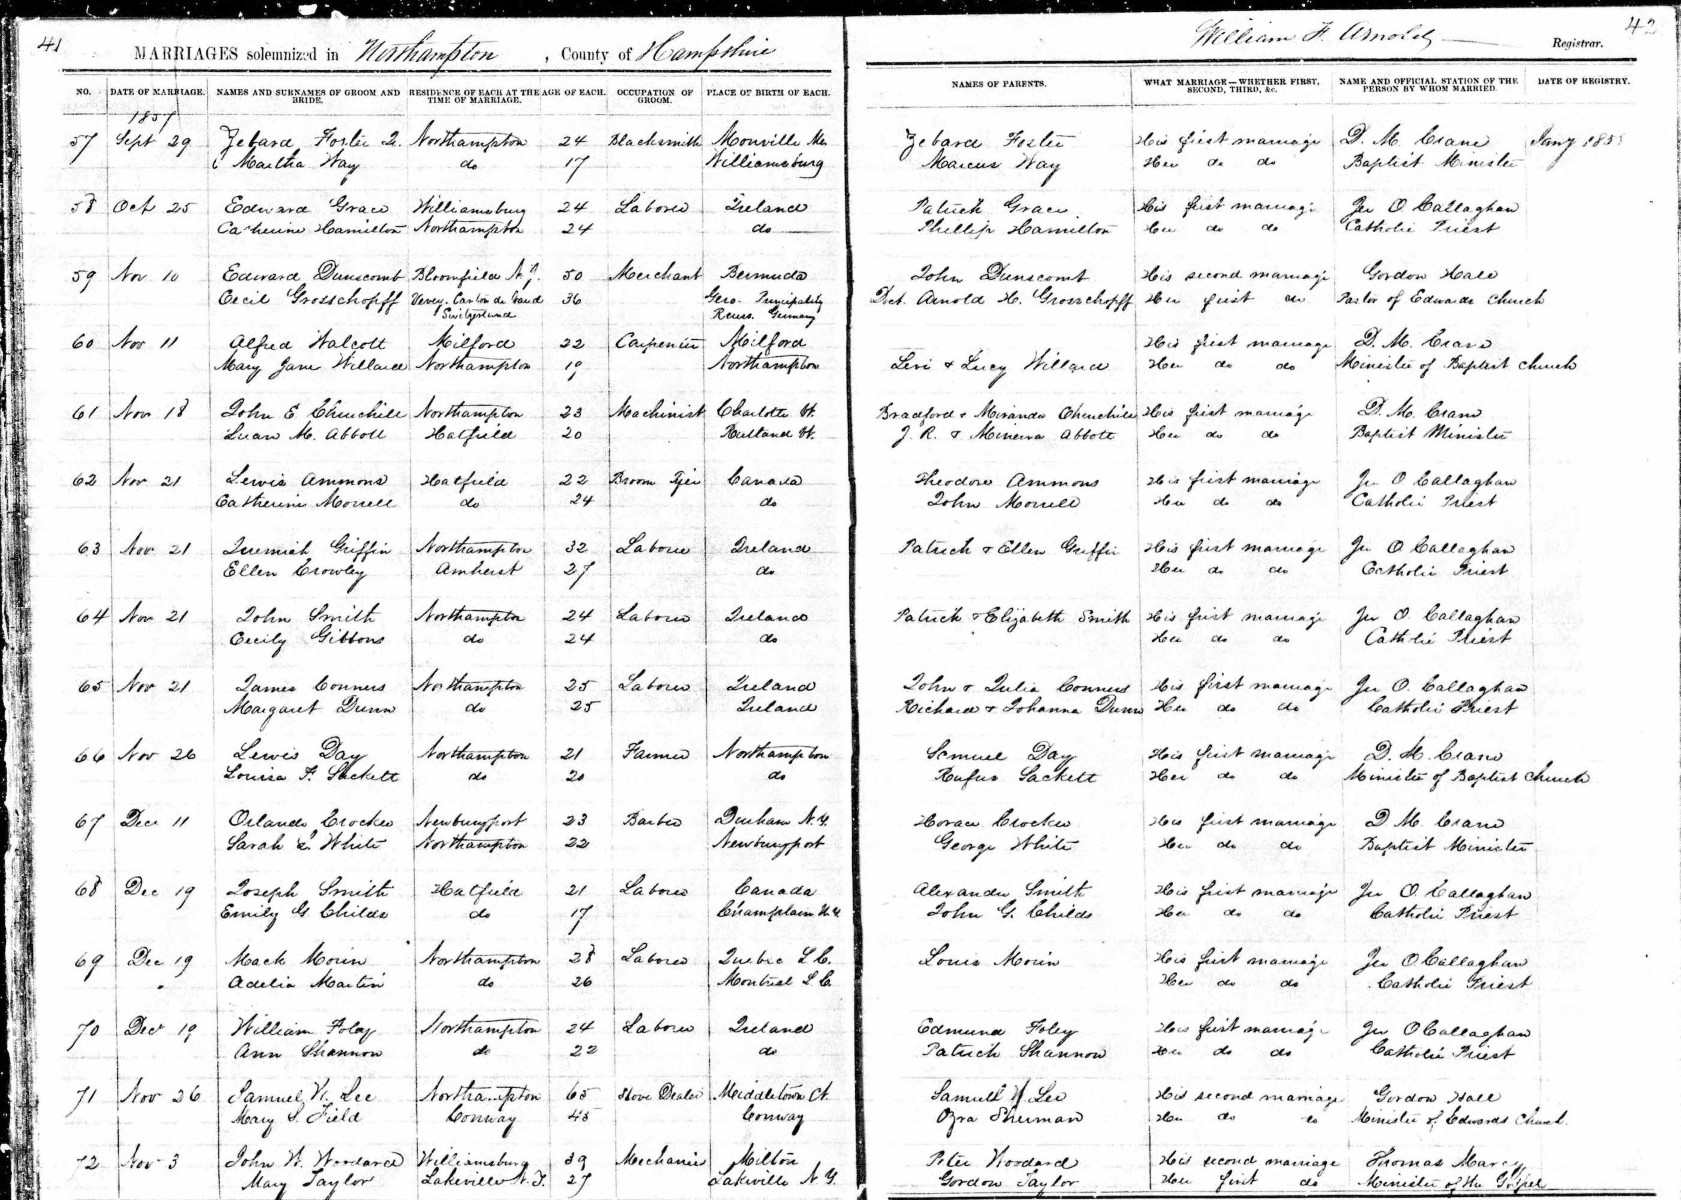 41
MARRIAGES solemnized in Northampton, County of Hampshire
NO. DATE OF MARRIAGE. NAMES AND SURNAMES OF GROOM AND BRIDE. RESIDENCE OF EACH AT THE TIME OF MARRIAGE. AGE OF EACH. OCCUPATION OF GROOM. PLACE OF BIRTH OF EACH.
1857
57 Sept 29 Zebard Foster Jr. Northampton 24 Blacksmith Monville Me
Martha Way do 17 Williamsburg
58 Oct 25 Edward Grace Williamsburg 24 Laborer Ireland
Catherine Hamilton Northampton 24 do
59 Nov 10 Edward Dunscomb Bloomfield N.J. 50 Merchant Bermuda
Cecil Grosschopff Vevey. Canton de Vaud 36 Gera. Principality
Switzerland Reuss. Germany
60 Nov 11 Alfred Walcott Milford 22 Carpenter Milford
Mary Jane Willard Northampton 19 Northampton
61 Nov 18 John E Churchill Northampton 23 Machinist Charlotte Vt.
Luan M. Abbott Hatfield 20 Rutland Vt.
62 Nov 21 Lewis Ammons Hatfield 22 Broom Tyer Canada
Catherine Morrell do 24 do
63 Nov 21 Jeremiah Griffin Northampton 32 Laborer Ireland
Ellen Crowley Amherst 27 do
64 Nov 21 John Smith Northampton 24 Laborer Ireland
Cecily Gibbons do 24 do
65 Nov 21 James Conners Northampton 25 Laborer Ireland
Margaret Dunn do 25 Ireland
66 Nov 26 Lewis Day Northampton 21 Farmer Northampton
Louisa F. Sackett do 20 do
67 Dec 11 Orlando Crocker Newburyport 23 Barber Durham N.Y.
Sarah White Northampton 22 Newburyport
68 Dec 19 Joseph Smith Hatfield 21 Laborer Canada
Emily G Childs do 17 Champlain N.Y
69 Dec 19 Mack Morin Northampton 28 Laborer Quebec L.C.
Adelia Martin do 26 Montreal L.C.
70 Dec 19 William Foley Northampton 24 Laborer Ireland
Ann Shannon do 22 do
71 Nov 26 Samuel W. Lee Northampton 65 Stove Dealer Middletown Ct
Mary S. Field Conway 45 Conway
72 Nov 3 John W. Woodard Williamsburg 39 Mechanic Milton
Mary Taylor Lakeville N.Y. 27 Lakeville N.Y.
William F. Arnold Registrar. 42
NAMES OF PARENTS. WHAT MARRIAGE—WHETHER FIRST, SECOND, THIRD, &c. NAME AND OFFICIAL STATION OF THE PERSON BY WHOM MARRIED. DATE OF REGISTRY.
Zebard Foster His first marriage D. M. Crane Jany 185
Marcus Way Her do do Baptist Minister
Patrick Grace His first marriage Jer O Callaghan
Phillip Hamilton Her do do Catholic Priest
John Dunscomb His second marriage Gordon Hall
Doct. Arnold H. Grosschopff Her first do Pastor of Edwards Church
His first marriage D. M. Crane
Levi & Lucy Willard Her do do Minister of Baptist Church
Bradford & Miranda Churchill His first marriage D. M. Crane
J. R. & Minerva Abbott Her do do Baptist Minister
Theodore Ammons His first marriage Jer O Callaghan
John Morrell Her do do Catholic Priest
Patrick & Ellen Griffin His first marriage Jer O Callaghan
Her do do Catholic Priest
Patrick & Elizabeth Smith His first marriage Jer O. Callaghan
Her do do Catholic Priest
John & Julia Conners His first marriage Jer O. Callaghan
Richard & Johanna Dunn Her do do Catholic Priest
Samuel Day His first marriage D. M. Crane
Rufus Sackett Her do do Minister of Baptist Church
Horace Crocker His first marriage D M. Crane
George White Her do do Baptist Minister
Alexander Smith His first marriage Jer O. Callaghan
John G. Childs Her do do Catholic Priest
Louis Morin His first marriage Jer O Callaghan
Her do do Catholic Priest
Edmund Foley His first marriage Jer O Callaghan
Patrick Shannon Her do do Catholic Priest
Samuel W Lee His second marriage Gordon Hall
Ozra Sherman Her do do Minister of Edwards Church.
Peter Woodard His second marriage Thomas Marcy
Gordon Taylor Her first do Minister of the Gospel